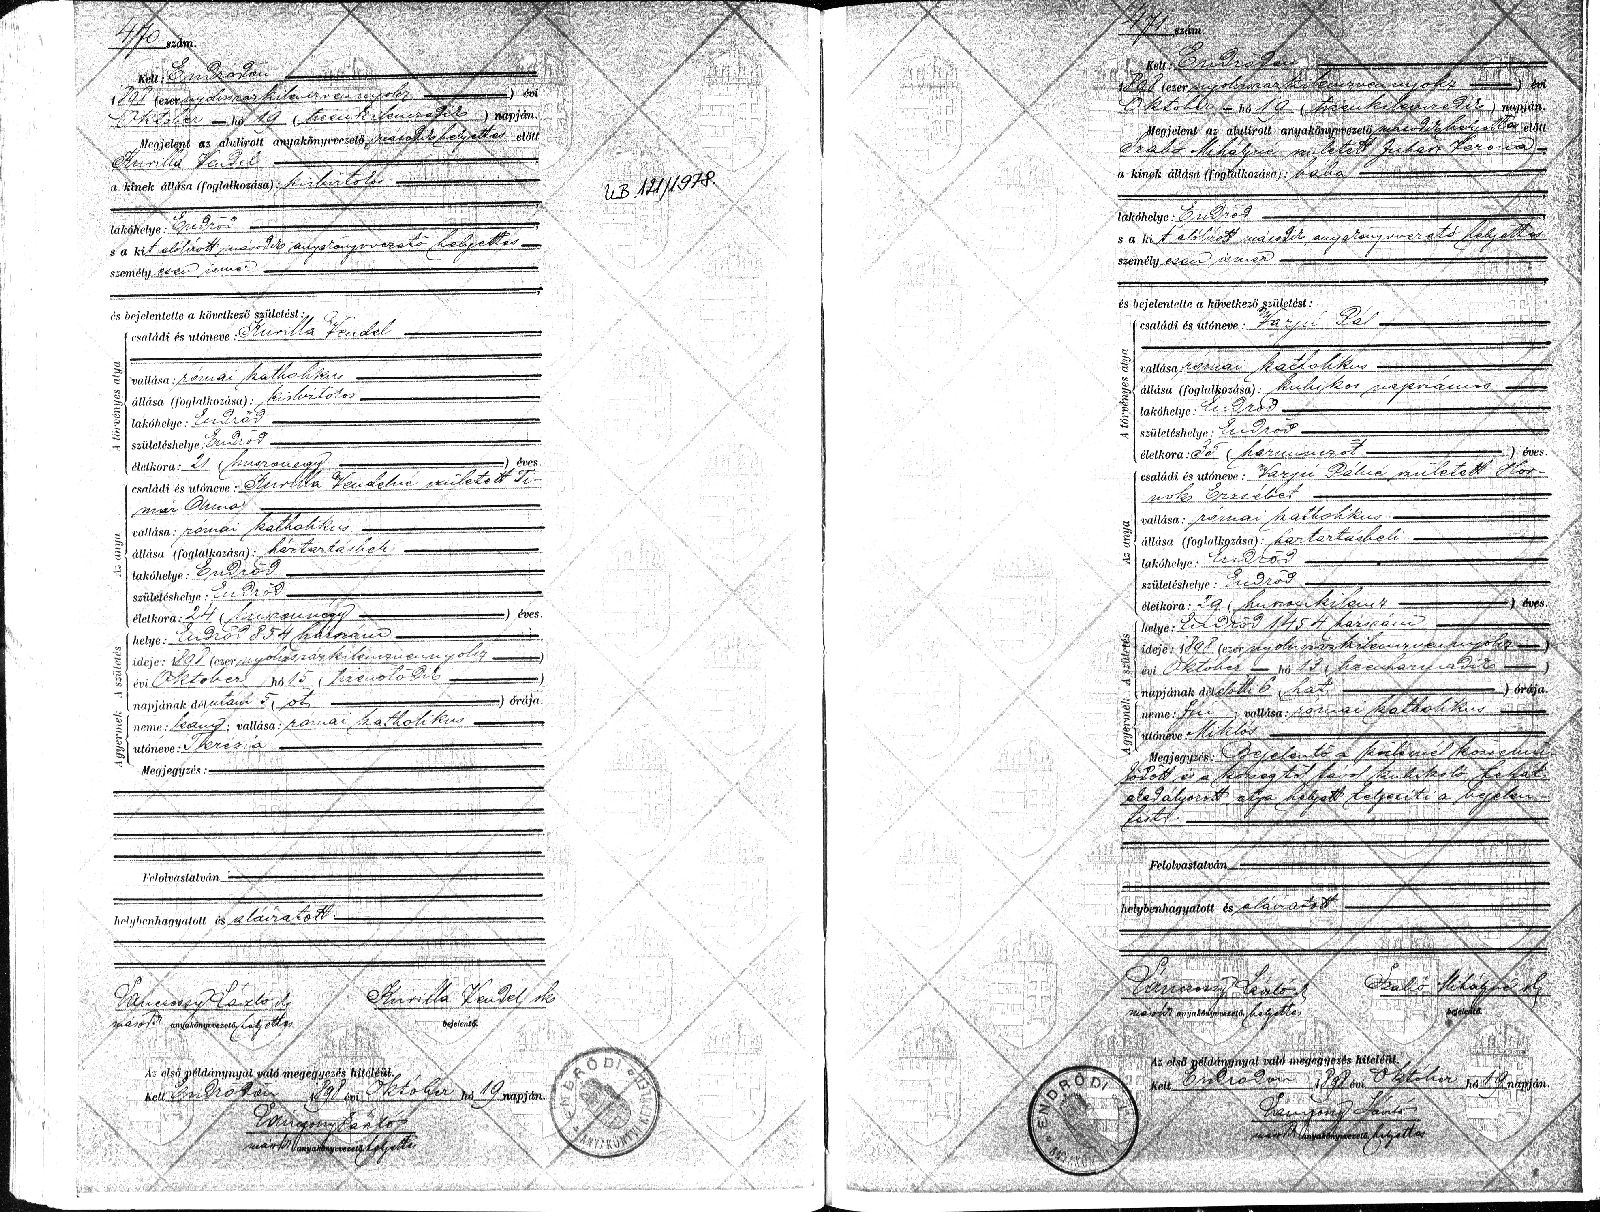 470 szám.
Kelt: Endrődön
1898 (ezernyolcszázkilencvennyolcz) évi
Október hó 19 (tizenkilenczedik) napján.
Megjelent az alulirott anyakönyvvezető másodikhelyettes előtt
Kurilla Vendel
a kinek állása (foglalkozása): kisbirtokos
lakóhelye: Endrőd
s a kit alólirott második anyakönyvvezető helyettes
személyesen ismer
és bejelentette a következő születést:
A törvényes atya
családi és utóneve: Kurilla Vendel
vallása: római katholikus
állása (foglalkozása): kisbirtokos
lakóhelye: Endrőd
születéshelye: Endrőd
életkora: 21 (huszonegy) éves
Az anya
családi és utóneve: Kurilla Vendelné született Ti-
már Anna
vallása: római katholikus
állása (foglalkozása): háztartásbeli
lakóhelye: Endrőd
születéshelye: Endrőd
életkora: 24 (huszonnégy) éves.
A gyermek A születés
helye: Endrőd 854 házszám
ideje: 1898 (ezernyolcszázkilenczvennyolcz)
évi Október hó 15 (tizenötödik)
napjának délutáni 5 (öt) órája.
neme: leány; vallása: római katholikus
utóneve: Therézia
Megjegyzés:
Felolvastatván
helybenhagyatott és aláiratott
László
Kurilla Vendel sk
másod anyakönyvvezető helyettes
bejelentő.
Az első példánynyal való megegyezés hiteléül.
Kelt Endrődön 1898 évi Október hó 19 napján.
László
másod anyakönyvvezető helyettes
ENDRŐDI
UB 121/1978.
471 szám.
Kelt: Endrődön
1898 (ezernyolcszázkilenczvennyolcz) évi
Október hó 19 (tizenkilenczedik) napján.
Megjelent az alulirott anyakönyvvezető másodikhelyettes előtt
Szabó Mihályné született Juhász Verona
a kinek állása (foglalkozása): bába
lakóhelye: Endrőd
s a kit alólirott második anyakönyvvezető helyettes
személyesen ismer
és bejelentette a következő születést:
A törvényes atya
családi és utóneve: Varjú Pál
vallása: római katholikus
állása (foglalkozása): kubikos napszámos
lakóhelye: Endrőd
születéshelye: Endrőd
életkora: 35 (harminczöt) éves.
Az anya
családi és utóneve: Varjú Pálné született Hor-
nok Erzsébet
vallása: római katholikus
állása (foglalkozása): háztartásbeli
lakóhelye: Endrőd
születéshelye: Endrőd
életkora: 29 (huszonkilencz) éves.
A gyermek A születés
helye: Endrőd 1454 házszám
ideje: 1898 (ezernyolcszázkilenczvennyolcz)
évi Október hó 13 (tizenharmadik)
napjának délelőtti 6 (hat) órája.
neme: fiú; vallása: római katholikus
utóneve: Miklós
Megjegyzés: Bejelentő a szülésnél közremű-
ködött és a községtől távol kubikoló, tehát
akadályozott atya helyett teljesiti a bejelen-
tést.
Felolvastatván
helybenhagyatott és aláiratott
László
Szabó Mihályné
másod anyakönyvvezető helyettes
bejelentő.
Az első példánynyal való megegyezés hiteléül.
Kelt Endrődön 1898 évi Október hó 19 napján.
László
másod anyakönyvvezető helyettes
ENDRŐDI